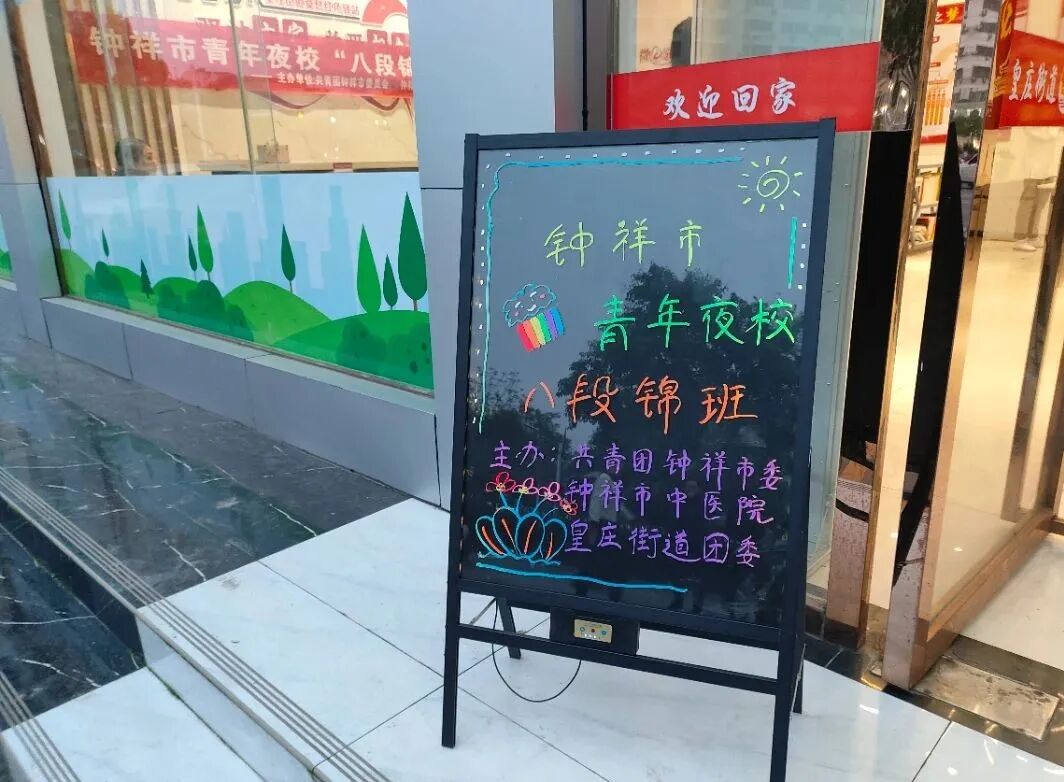 钟祥市青年夜校“八段锦
主办单位:共青团钟祥市委员会
欢迎回家
皇庄街道
钟祥市
青年夜校
八段锦班
主办：共青团钟祥市委
钟祥市中医院
皇庄街道团委